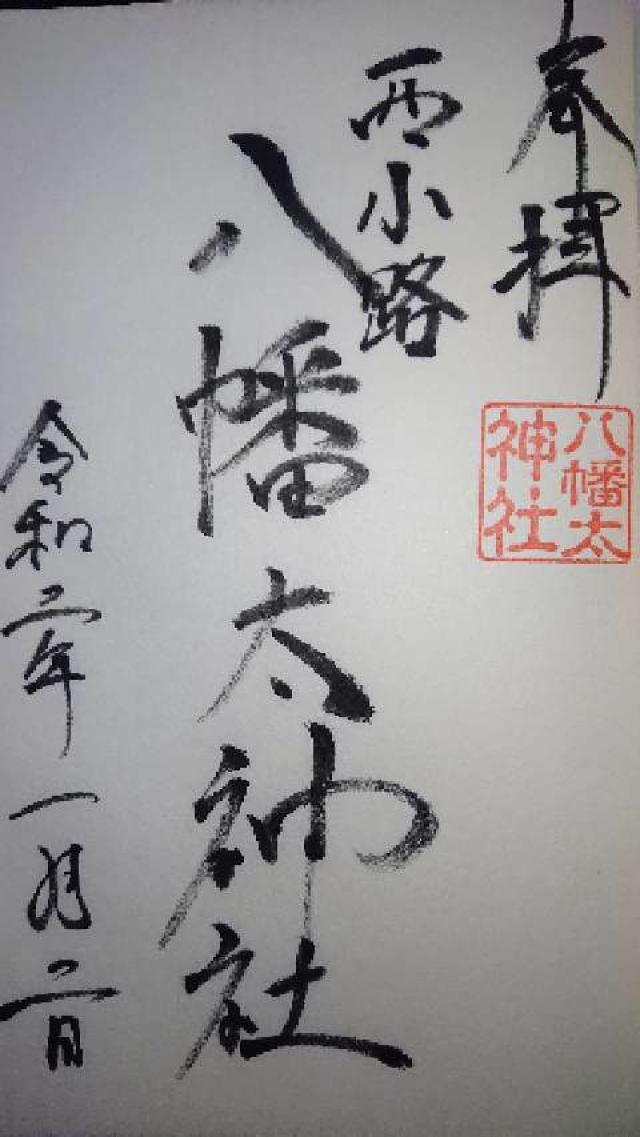 奉拝
八幡太
神社
西小路
八幡太神社
令和二年一月二日